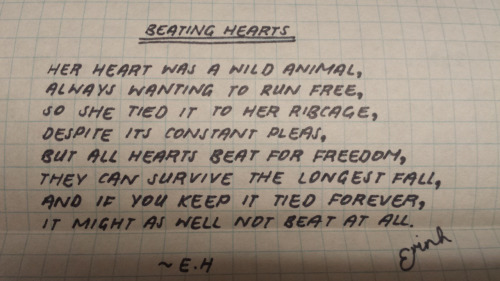 BEATING HEARTS
HER HEART WAS A WILD ANIMAL,
ALWAYS WANTING TO RUN FREE,
SO SHE TIED IT TO HER RIBCAGE,
DESPITE ITS CONSTANT PLEAS,
BUT ALL HEARTS BEAT FOR FREEDOM,
THEY CAN SURVIVE THE LONGEST FALL,
AND IF YOU KEEP IT TIED FOREVER,
IT MIGHT AS WELL NOT BEAT AT ALL.
~ E.H
Erinh